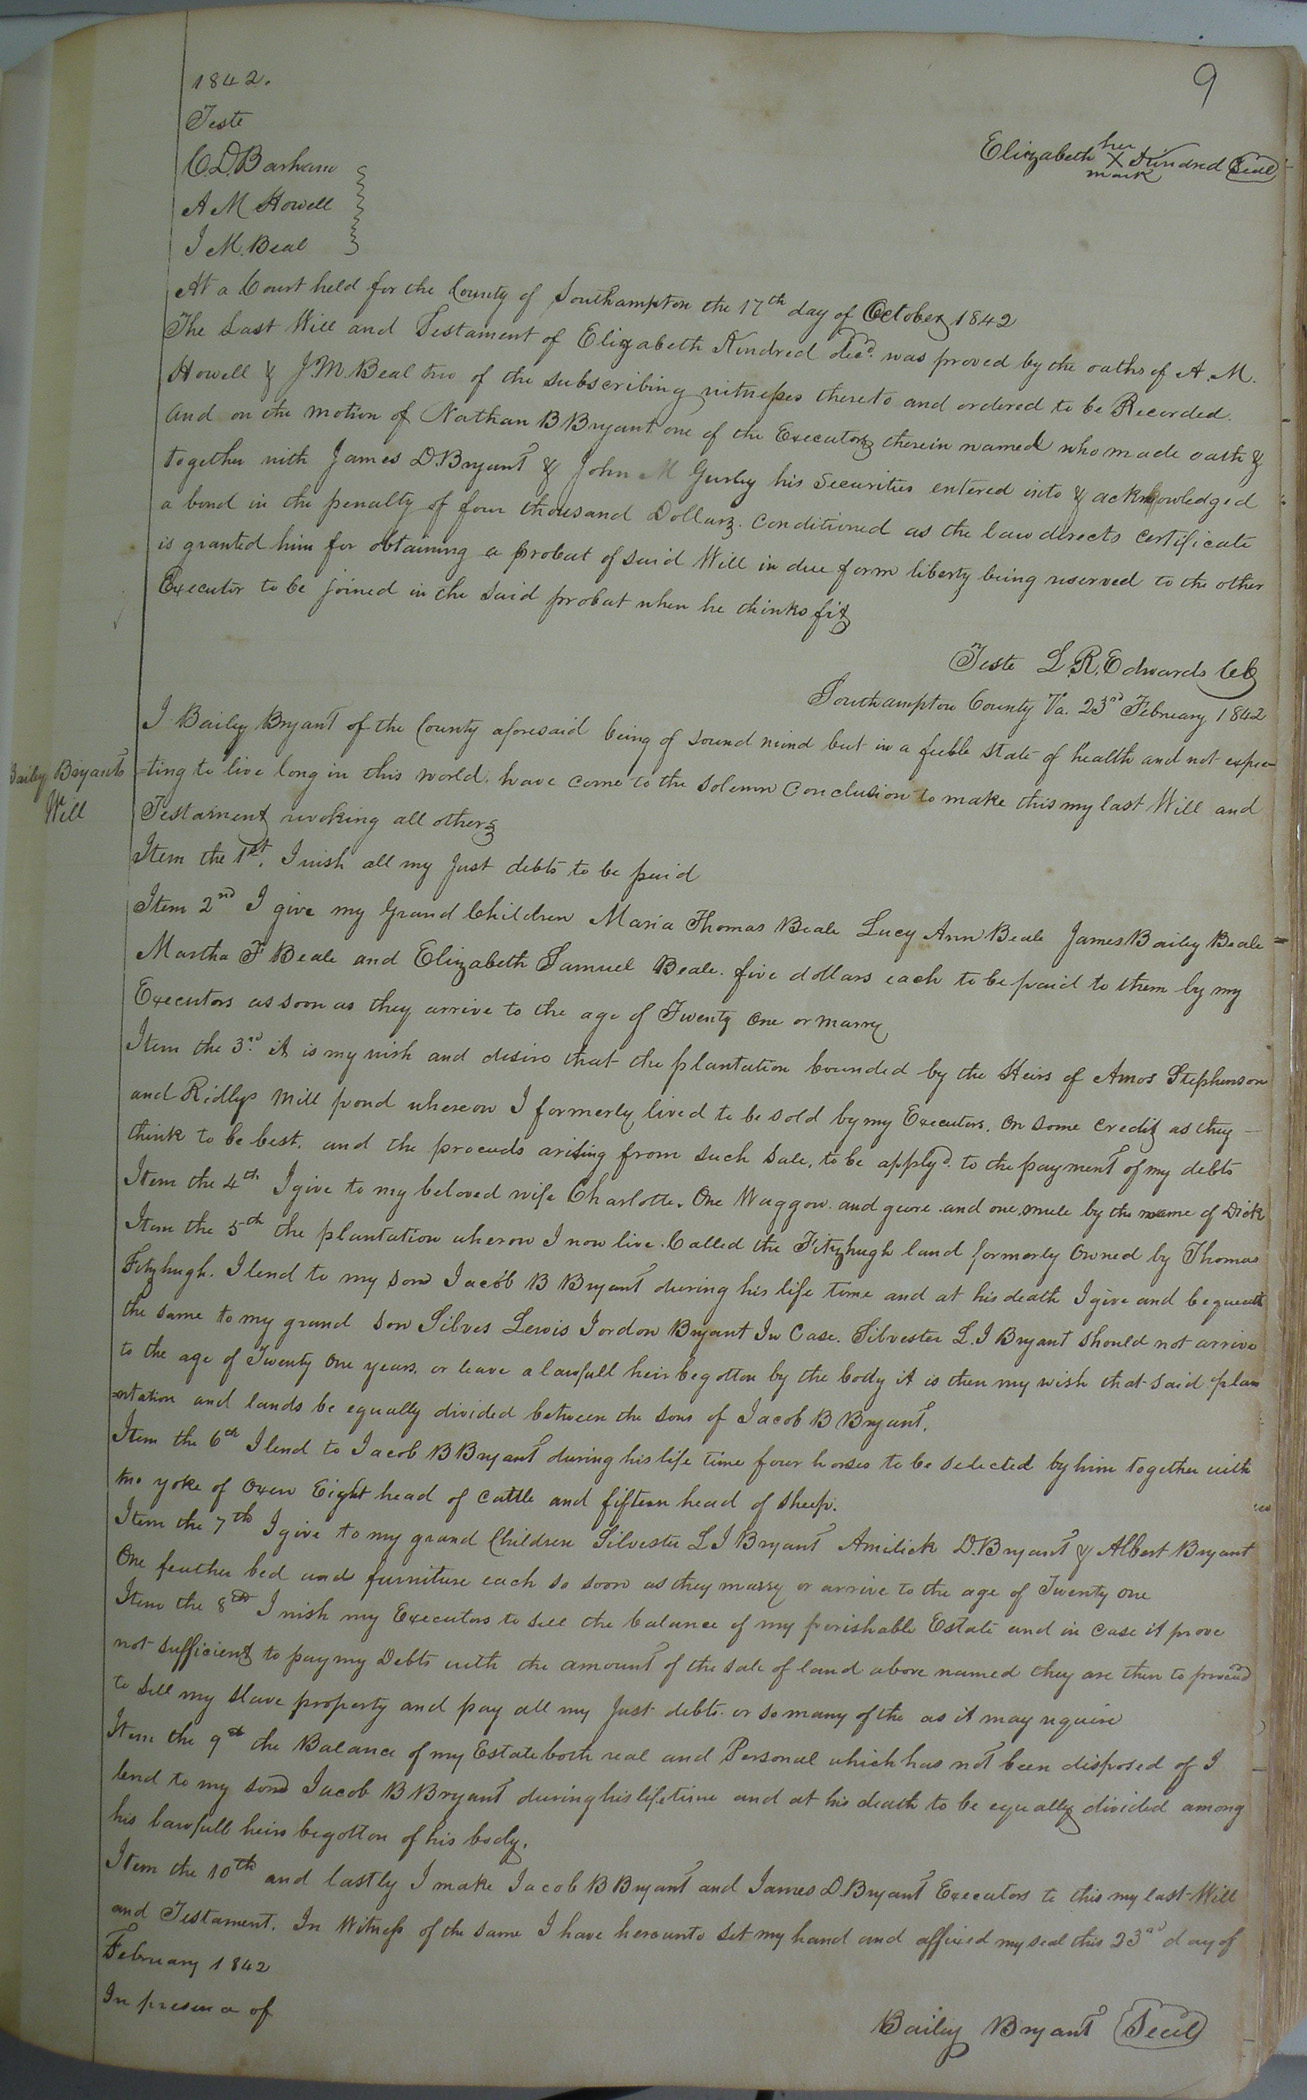 9
1842.
Teste
C. D. Barham
A M Howell
J M. Beal
her
Elizabeth X Kindred Seal
mark
At a Court held for the County of Southampton the 17th day of October 1842
The Last Will and Testament of Elizabeth Kindred decd. was proved by the oaths of A. M.
Howell & J. M. Beal two of the subscribing witnesses thereto and ordered to be Recorded.
And on the motion of Nathan B Bryant one of the Executors therein named who made oath &
together with James D. Bryant & John M Gurley his Securities entered into & acknowledged
a bond in the penalty of four thousand Dollars. conditioned as the law directs certificate
is granted him for obtaining a probat of said Will in due form liberty being reserved to the other
Executor to be joined in the said probat when he thinks fit
Teste L. R. Edwards Clk
Southampton County Va. 23rd February 1842
Bailey Bryants
Will
I Bailey Bryant of the County aforesaid being of sound mind but in a feeble state of health and not expec
=ting to live long in this world. have come to the solemn conclusion to make this my last Will and
Testament revoking all others
Item the 1st. I wish all my Just debts to be paid
Item 2nd I give my Grand Children Maria Thomas Beale Lucy Ann Beale James Bailey Beale
Martha F Beale and Elizabeth Samuel Beale. five dollars each to be paid to them by my
Executors as soon as they arrive to the age of Twenty one or marry
Item the 3rd. it is my wish and desire that the plantation bounded by the Heirs of Amos Stephenson
and Ridlys Mill pond whereon I formerly lived to be sold by my Executors. on some credit as they
think to be best. and the proceeds arising from such sale, to be applyd. to the payment of my debts
Item the 4th I give to my beloved wife Charlotte. One Waggon and geore and one mule by the name of Dick
Item the 5th the plantation wheron I now live. Called the Fitzhugh land formerly Owned by Thomas
Fitzhugh. I lend to my son Jacob B Bryant during his life time and at his death I give and bequeath
the same to my grand son Silves Lewis Jordon Bryant In Case. Silvester L. J Bryant should not arrive
to the age of Twenty one years. or leave a lawfull heir begotton by the body it is then my wish that said plan
=ntation and lands be equally divided between the sons of Jacob B Bryant.
Item the 6th I lend to Jacob B Bryant during his life time four horses to be selected by him together with
two yoke of Oxen Eight head of cattle and fifteen head of sheep.
Item the 7th I give to my grand Children Silvester L J Bryant Amilick D. Bryant & Albert Bryant
One feather bed and furniture each so soon as they marry or arrive to the age of Twenty one
Item the 8th I wish my Executors to sell the balance of my perishable Estate and in case it prove
not sufficient to pay my Debts with the amount of the sale of land above named they are then to proceed
to sell my slave property and pay all my Just debts. or so many of the as it may require
Item the 9th the Balance of my Estate both real and Personal which has not been disposed of I
lend to my son Jacob B Bryant during his lifetime and at his death to be equally divided among
his lawfull heirs begotton of his body.
Item the 10th and lastly I make Jacob B Bryant and James D. Bryant Executors to this my last Will
and Testament. In Witness of the same I have hereunto set my hand and affixed my seal this 23rd day of
February 1842
In presence of
Bailey Bryant Seal